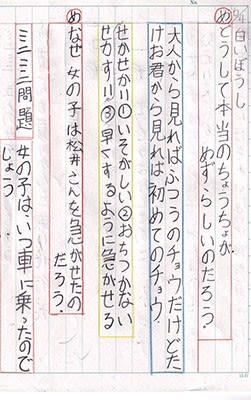 5/6 白いぼうし
め どうして本当のちょうちょが
めずらしいのだろう?
大人から見ればふつうのチョウだけどた
けお君から見れば初めてのチョウ
せかせか=①いそがしい②おちつかない
せかす=③早くするように急かせる
め なぜ女の子は松井さんを急かせたの
だろう?
ミニミニ問題 女の子は、いつ車に乗ったので
しょう